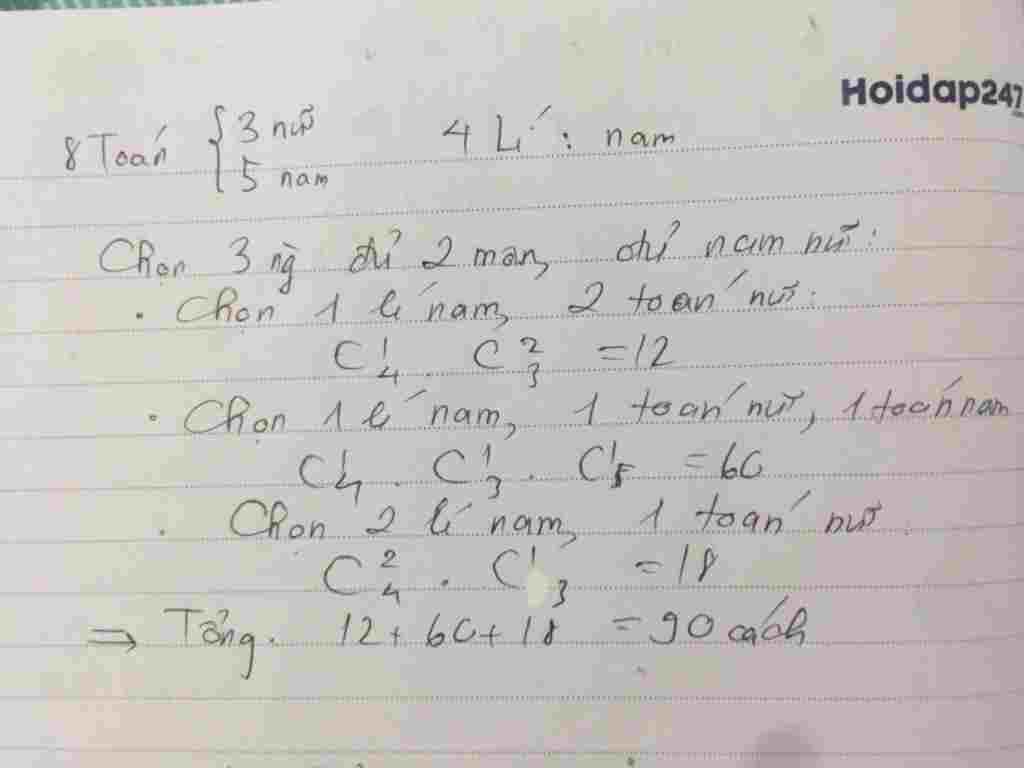 Hoidap247
8 Toán { 3 nữ 4 Lí : nam
5 nam
Chọn 3 ng đủ 2 môn, đủ nam nữ :
. Chọn 1 lí nam, 2 toán nữ :
C¹₄ . C²₃ = 12
. Chọn 1 lí nam, 1 toán nữ, 1 toán nam
C¹₄ . C¹₃ . C¹₅ = 60
. Chọn 2 lí nam, 1 toán nữ .
C²₄ . C¹₃ = 18
⇒ Tổng . 12 + 60 + 18 = 90 cách